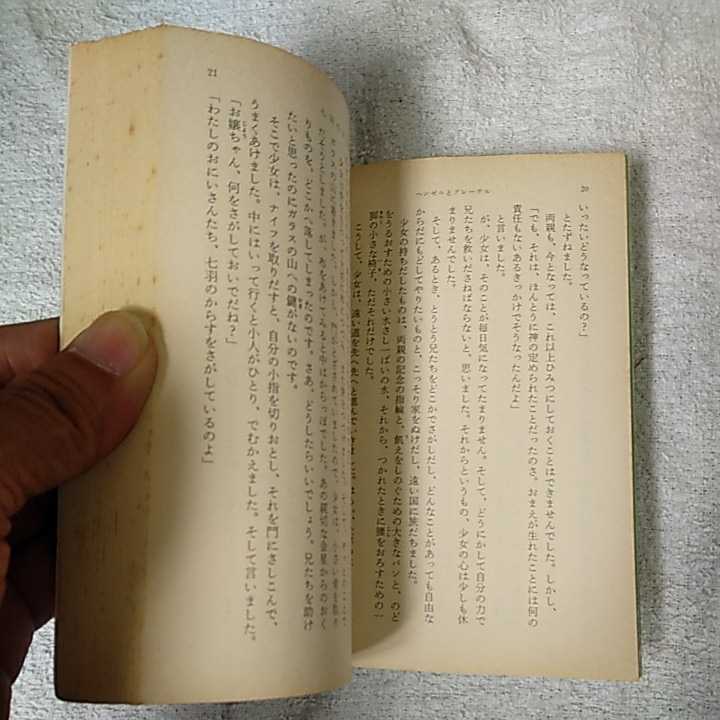 20
ヘンゼルとグレーテル
いったいどうなっているの?」
とたずねました。
両親も、今となっては、これ以上ひみつにしておくことはできませんでした。しかし、
「でも、それは、ほんとうに神の定められたことだったのさ。おまえが生れたことには何の
責任もないあるきっかけでそうなったんだよ」
と言いました。
が、少女は、そのことが毎日気になってたまりません。そして、どうにかして自分の力で
兄たちを救いださねばならないと、思いました。それからというもの、少女の心は少しも休
まりませんでした。
そして、あるとき、とうとう兄たちをどこかでさがしだし、どんなことがあっても自由な
からだにもどしてやりたいものと、こっそり家をぬけだし、遠い国に旅だちました。
少女の持ちだしたものは、両親の記念の指輪と、飢えをしのぐための大きなパンと、のど
をうるおすための小さい水さし一ぱいの水、それから、つかれたときに腰をおろすための一
脚の小さな椅子、ただそれだけでした。
こうして、少女は、遠い道を先へ先へと進んでいきました。
21
りものを、どこかへ落してしまったのです。さあ、どうしたらいいでしょう。兄たちを助け
たいと思ったのにガラスの山への鍵がないのです。
そこで少女は、ナイフを取りだすと、自分の小指を切りおとし、それを門にさしこんで、
うまくあけました。中にはいって行くと小人がひとり、でむかえました。そして言いました。
「お嬢ちゃん、何をさがしておいでだね?」
「わたしのおにいさんたち、七羽のからすをさがしているのよ」